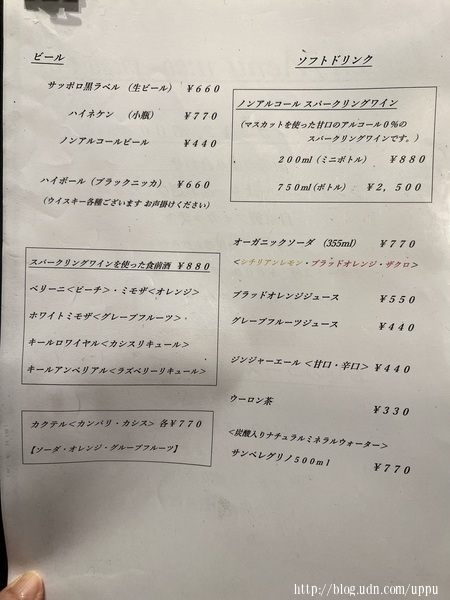 ビール
サッポロ黒ラベル (生ビール) ¥660
ハイネケン (小瓶) ¥770
ノンアルコールビール ¥440
ハイボール (ブラックニッカ) ¥660
(ウイスキー各種ございます お声掛けください)
スパークリングワインを使った食前酒 ¥880
ベリーニ<ピーチ>・ミモザ<オレンジ>
ホワイトミモザ<グレープフルーツ>・
キールロワイヤル<カシスリキュール>
キールアンペリアル<ラズベリーリキュール>
カクテル<カンパリ・カシス> 各¥770
【ソーダ・オレンジ・グループフルーツ】
ソフトドリンク
ノンアルコール スパークリングワイン
(マスカットを使った甘口のアルコール0%の
スパークリングワインです。)
200ml (ミニボトル) ¥880
750ml (ボトル) ¥2,500
オーガニックソーダ (355ml) ¥770
<シチリアンレモン・ブラッドオレンジ・ザクロ>
ブラッドオレンジジュース ¥550
グレープフルーツジュース ¥440
ジンジャーエール<甘口・辛口> ¥440
ウーロン茶 ¥330
<炭酸入りナチュラルミネラルウォーター>
サンペレグリノ500ml ¥770
http://blog.udn.com/uppu